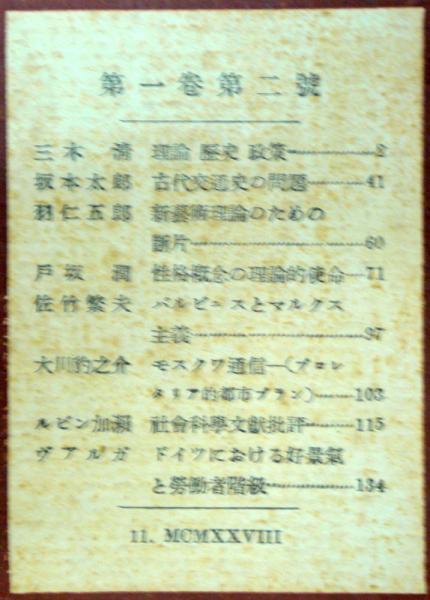 第一卷第二號
三木 清 理論 歷史 政策……………2
坂本太郎 古代交通史の問題………41
羽仁五郎 新藝術理論のための
斷片……………………60
戶坂 潤 性格概念の理論的使命…71
佐竹繁夫 バルビュスとマルクス
主義……………………97
大川豹之介 モスクワ通信―(プロレ
タリア的都市プラン)………103
ルビン加瀨 社會科學文獻批評………115
ヴアルガ ドイツにおける好景氣
と勞働者階級……………134
11. MCMXXVIII